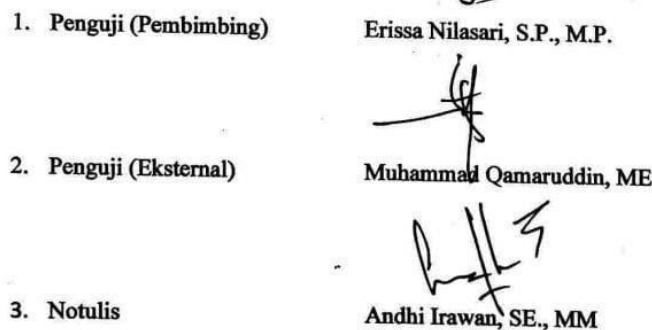 1. Penguji (Pembimbing) Erissa Nilasari, S.P., M.P.
2. Penguji (Eksternal) Muhammad Qamaruddin, ME
3. Notulis Andhi Irawan, SE., MM